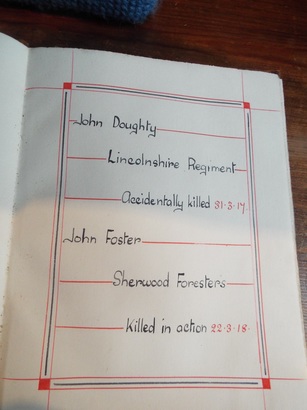 John Doughty
Lincolnshire Regiment
Accidentally killed 31·3·17.
John Foster
Sherwood Foresters
Killed in action 22·3·18·